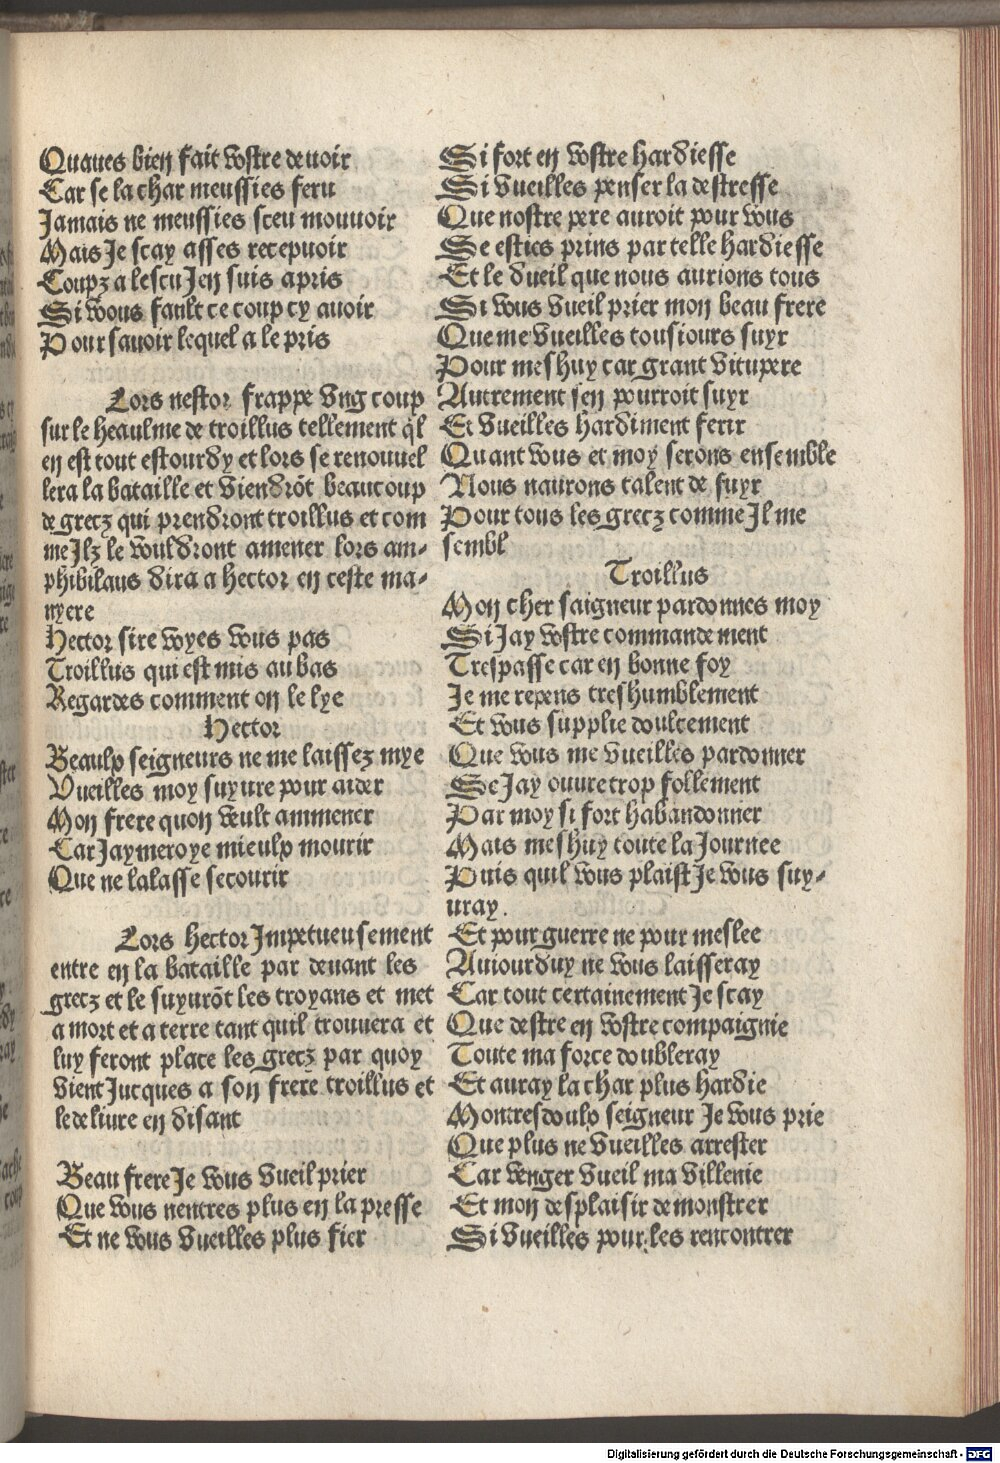 Quaues bien fait vostre deuoir
Car se la char meussies feru
Jamais ne meussies sceu mouuoir
Mais Je scay asses recepuoir
Coupz a lescu Jen suis apris
Si vous fault ce coup cy auoir
Pour sauoir lequel a le pris
Lors nestor frappe vng coup
sur le heaulme de troillus tellement ql̃
en est tout estourdy et lors se renouuel
lera la bataille et viendrõt beaucoup
de grecz qui prendront troillus et com
me Jlz le vouldront amener lors am-
phibilaus dira a hector en ceste ma-
nyere
Hector sire voyes vous pas
Troillus qui est mis au bas
Regardes comment on le lye
Hector
Beaulx seigneurs ne me laissez mye
Vueilles moy suyure pour aider
Mon frere quon veult ammener
Car Jaymeroye mieulx mourir
Que ne lalasse secourir
Lors hector Jmpetueusement
entre en la bataille par deuant les
grecz et le suyurõt les troyans et met
a mort et a terre tant quil trouuera et
luy feront place les grecz par quoy
vient Jucques a son frere troillus et
le deliure en disant
Beau frere Je vous vueil prier
Que vous nentres plus en la presse
Et ne vous vueilles plus fier
Si fort en vostre hardiesse
Si vueilles penser la destresse
Que nostre pere auroit pour vous
Se esties prins par telle hardiesse
Et le dueil que nous aurions tous
Si vous vueil prier mon beau frere
Que me vueilles tousiours suyr
Pour meshuy car grant vitupere
Autrement sen pourroit suyr
Et vueilles hardiment ferir
Quant vous et moy serons ensemble
Nous naurons talent de fuyr
Pour tous les grecz comme Jl me
sembl
Troillus
Mon cher saigneur pardonnes moy
Si Jay vostre commandement
Trespasse car en bonne foy
Je me repens treshumblement
Et vous supplie doulcement
Que vous me vueilles pardonner
Se Jay ouure trop follement
Par moy si fort habandonner
Mais meshuy toute la Journee
Puis quil vous plaist Je vous suy-
uray.
Et pour guerre ne pour meslee
Auiourduy ne vous laisseray
Car tout certainement Je scay
Que destre en vostre compaignie
Toute ma force doubleray
Et auray la char plus hardie
Montresdoulx seigneur Je vous prie
Que plus ne vueilles arrester
Car venger vueil ma villenie
Et mon desplaisir demonstrer
Si vueilles pour les rencontrer
Digitalisierung gefördert durch die Deutsche Forschungsgemeinschaft - DFG